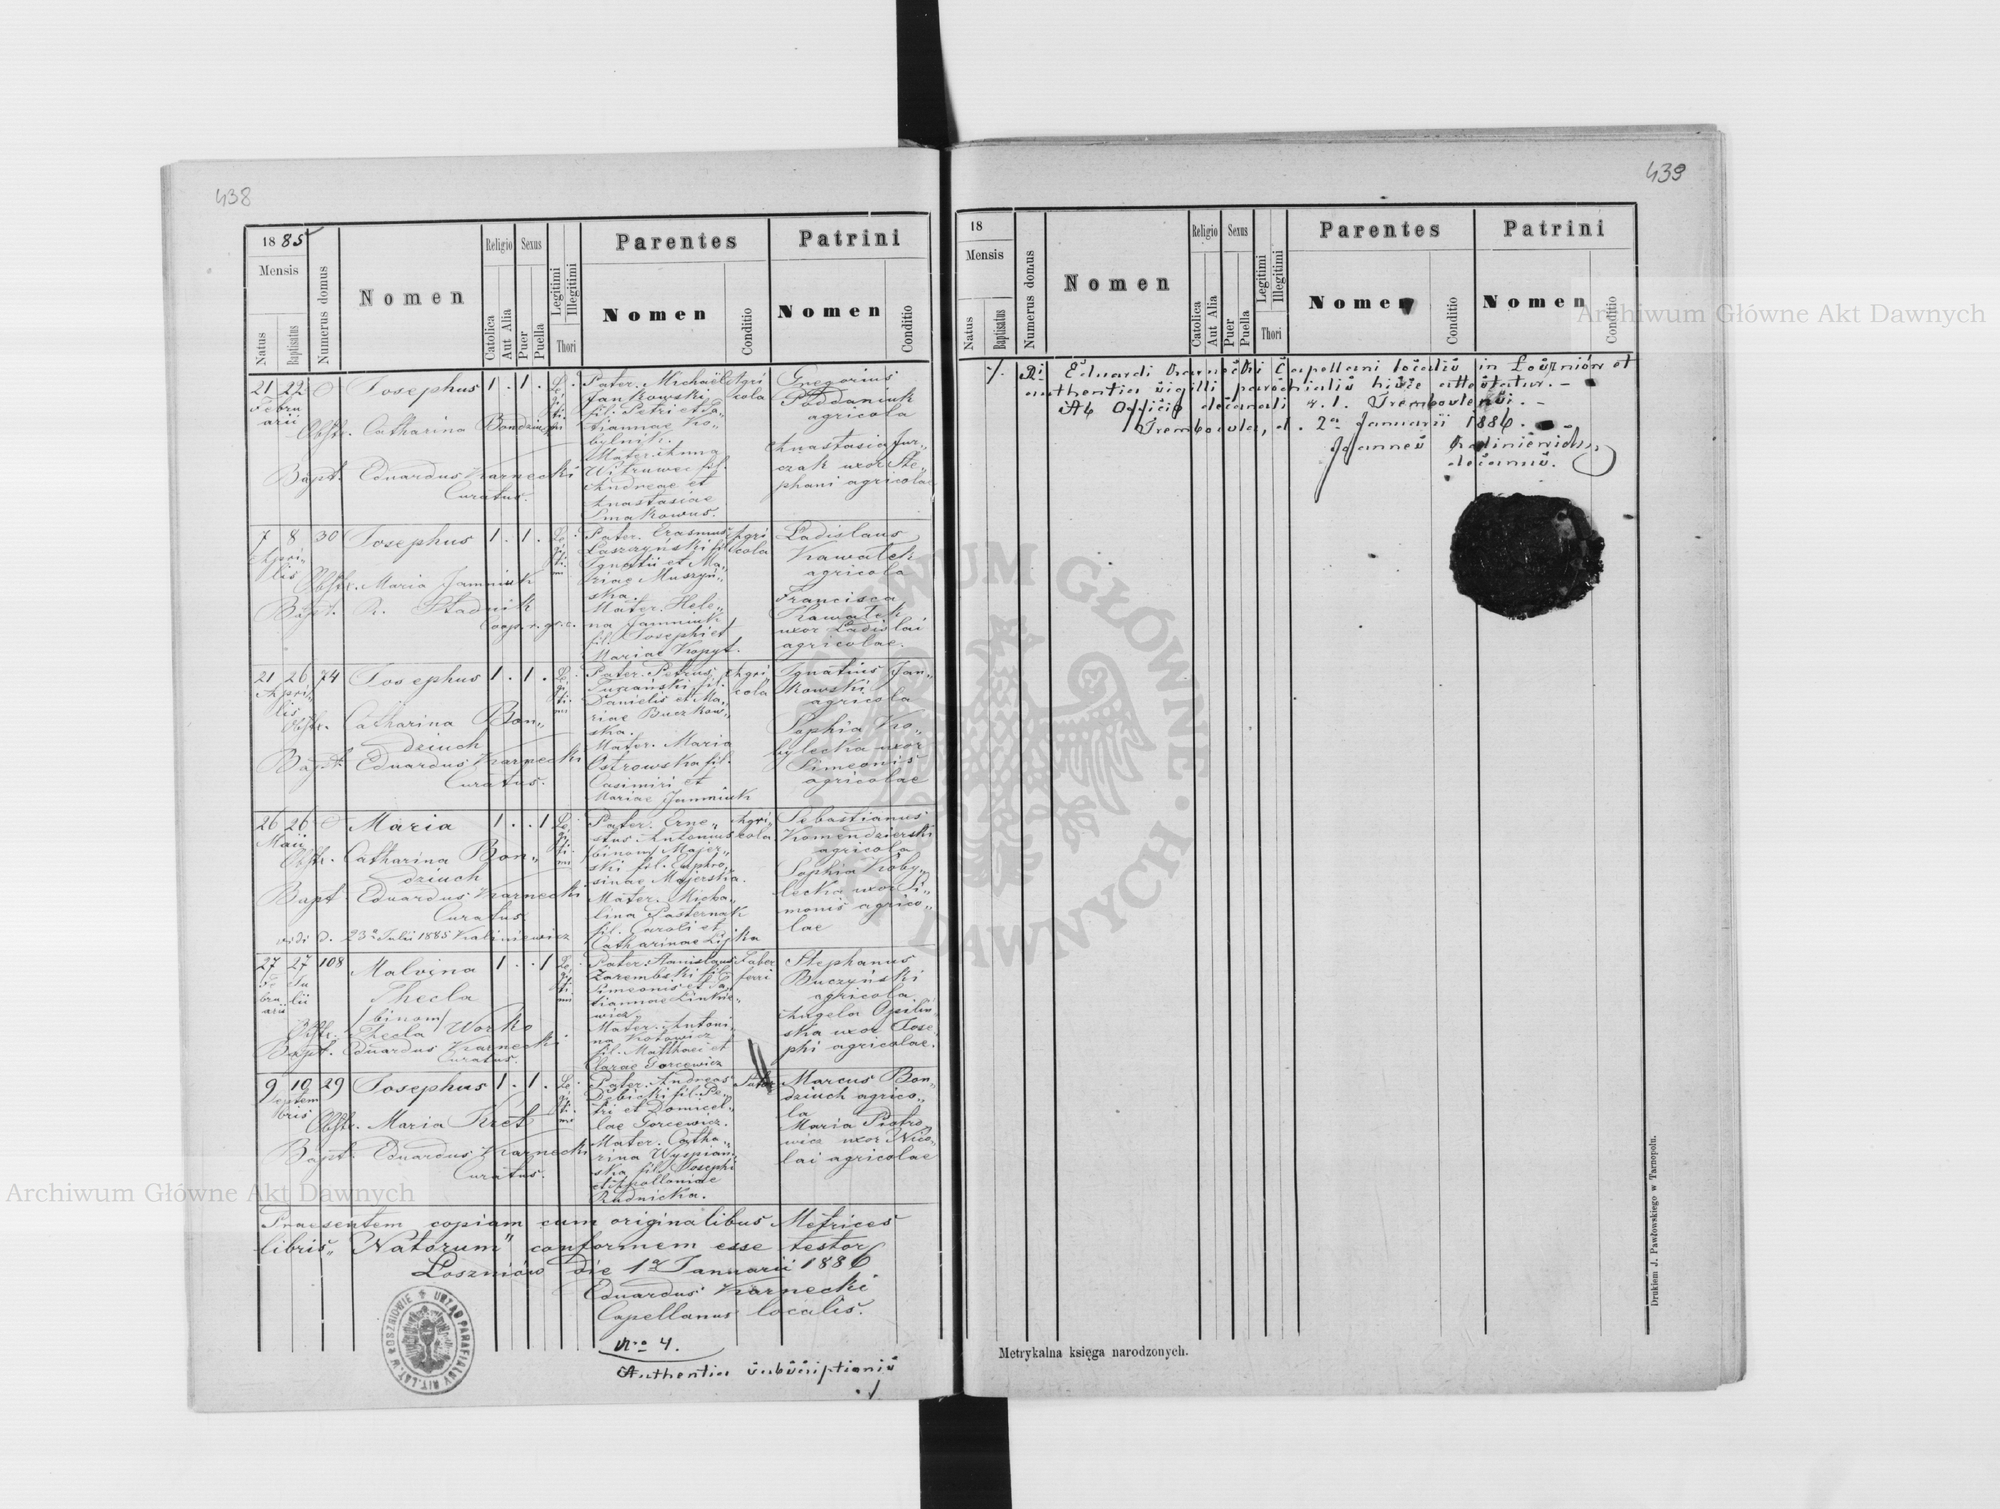 438
1885
Mensis
Natus
Baptisatus
Numerus domus
Nomen
Religio
Catolica
Aut Alia
Sexus
Puer
Puella
Legitimi
Illegitimi
Thori
Parentes
Nomen
Conditio
Patrini
Nomen
Conditio
21 22
Februarii
Josephus
1 . 1 .
Obstr. Catharina Bondziuch
Bapt. Eduardus Karnecki
Curatus.
Pater. Michaël
Jankowski
fil. Petri et Ta„
tiannae Ko„
bylnik.
Mater Anna
Witruwec fil.
Andreae et
Anastasiae
Smakowus.
Agri
cola
Gregorius
Poddaniuk
agricola
Anastasia Jur„
czak uxor Ste„
phani agricolae
7 8 30
Aprilis
Josephus
1 . 1 .
Obstr. Maria Jamniuk
Bapt. R. Stadnik
Coop. r. gr. c.
Pater. Erasmus
Laszczyński fil.
Ignatii et Ma„
riae Muszyń„
ska.
Mater. Hele„
na Jamniuk
fil. Josephi et
Mariae Kopyt.
Agri
cola
Ladislaus
Kawałek
agricola
Francisca
Kawałek
uxor Ladislai
agricolae.
21 26 74
Aprilis
Josephus
1 . 1 .
Obstr. Catharina Bon„
dziuch
Bapt. Eduardus Karnecki
Curatus.
Pater. Petrus
Turzański fil.
Danielis et Ma„
riae Buczkow„
ska.
Mater. Maria
Ostrowska fil.
Casimiri et
Mariae Jamniuk
Agri
cola
Ignatius Jan„
kowski
agricola
Sophia Ko„
bylecka uxor
Simeonis
agricolae
26 26
Maii
Maria
1 . . 1
Obstr. Catharina Bon„
dziuch
Bapt. Eduardus Karnecki
Curatus.
vidi d. 23a Julii 1885 Kaliniewicz
Pater. Erne„
stus Antonius
/binom/ Majer„
ski fil. Euphro„
sinae Majerska.
Mater. Micha„
lina Pasternak
fil. Caroli et
Catharinae
Agri
cola
Sebastianus
Komendzierski
agricola
Sophia Koby„
lecka uxor Si„
monis agrico„
lae
27 27 108
Februarii
Julii
Malvina
Thecla
/binom/
Obstr. Thecla Worko
Bapt. Eduardus Karnecki
Curatus.
1 . . 1
Pater. Stanislaus
Zarembski fil.
Simeonis et Ta„
tiannae Linkie„
wicz.
Mater. Antoni„
na Kotowicz
fil. Matthaei et
Clarae Gorcewicz
Faber
ferri
Stephanus
Buczyński
agricola.
Angela Opaliń„
ska uxor Jose„
phi agricolae.
9 10 29
Septembris
Josephus
1 . 1 .
Obstr. Maria Kret
Bapt. Eduardus Karnecki
Curatus.
Pater. Andreas
Dębicki fil. Pe„
tri et Domicel„
lae Gorcewicz.
Mater. Catha„
rina Wyspiań„
ska fil. Josephi
et Apolloniae
Rudnicka.
Sutor
Marcus Bon„
dziuch agrico„
la
Maria Piotro„
wicz uxor Nico„
lai agricolae
Praesentem copiam cum originalibus Metrices
libris „Natorum" conformem esse testor
Loszniów die 1a Januarii 1886
Eduardus Karnecki
Capellanus localis.
URZĄD PARAFIALNY RIT. ŁAT. W ŁOSZNIOWIE
No 4.
Authentia subscriptionis
./.
439
18
Mensis
Natus
Baptisatus
Numerus domus
Nomen
Religio
Catolica
Aut Alia
Sexus
Puer
Puella
Legitimi
Illegitimi
Thori
Parentes
Nomen
Conditio
Patrini
Nomen
Conditio
./. Rdi Eduardi Karnecki Capellani localis in Łoszniów et
authentia sigilli parochialis hisce attestatur. –
Ab Officio decanali r. l. Trembovlensi. –
Trembowla, d. 2a Januarii 1886.
Joannes Kaliniewicz
decanus.
Metrykalna księga narodzonych.
Drukiem J. Pawłowskiego w Tarnopolu.
Archiwum Główne Akt Dawnych
Archiwum Główne Akt Dawnych
ARCHIWUM GŁÓWNE AKT DAWNYCH